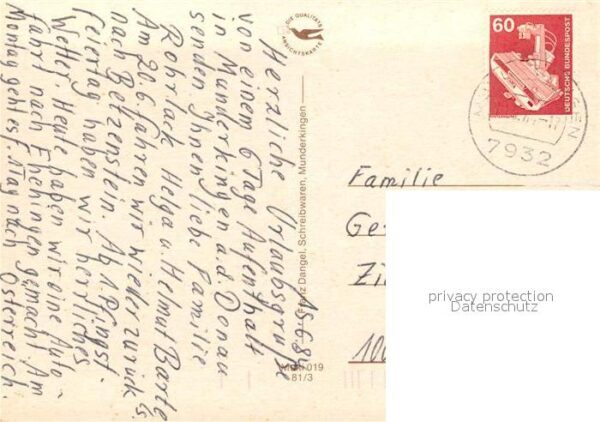 15.6.84
Herzliche Urlaubsgrüße
von einem 6 Tage Aufenthalt
in Munderkingen a.d. Donau
senden Ihnen liebe Familie
Rohrlack Helga u. Helmut Barte
Am 20.6. fahren wir wieder zurück
nach Betzenstein. Ab 1. Pfingst-
feiertag haben wir herrliches
Wetter. Heute haben wir eine Auto-
fahrt nach Ehehingen gemacht. Am
Montag geht es f. 1 Tag nach Österreich.
DIE QUALITÄTS
ANSICHTSKARTE
Franz Dangel, Schreibwaren, Munderkingen
019
81/3
60
DEUTSCHE BUNDESPOST
7932
Familie
Ge
Zi
100
privacy protection
Datenschutz